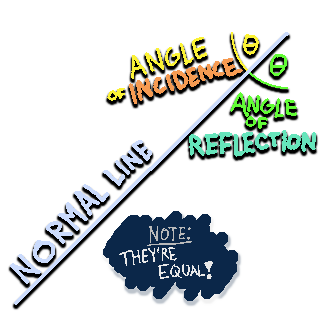 ANGLE
OF INCIDENCE
θ
θ
ANGLE
OF
REFLECTION
NORMAL LINE
NOTE:
THEY'RE
EQUAL!